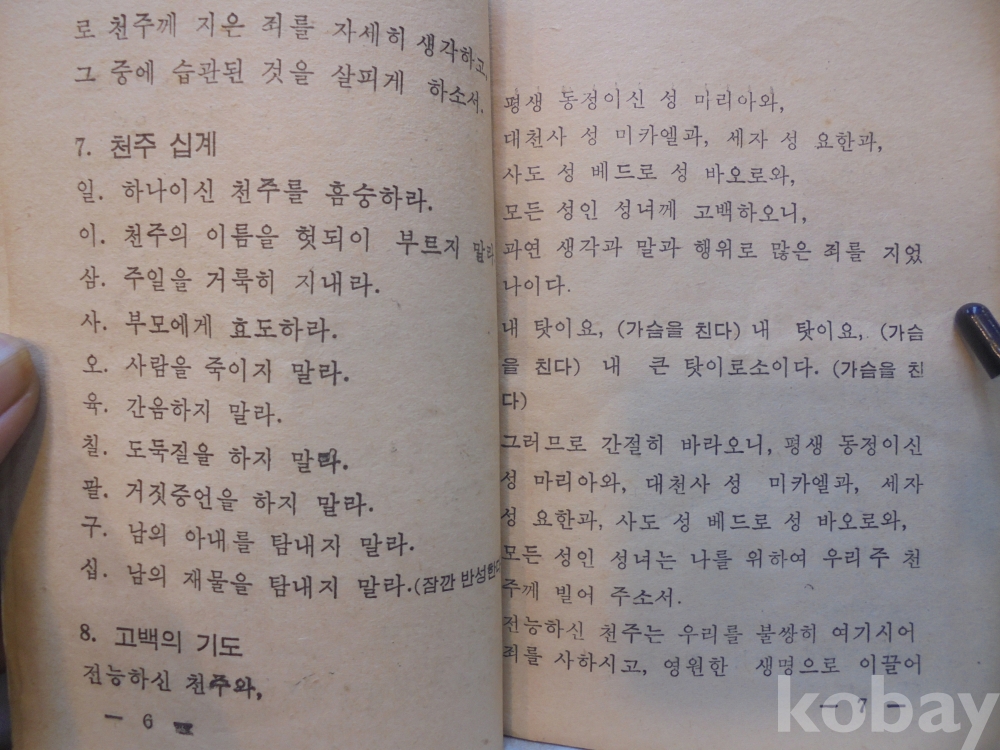 로 천주께 지은 죄를 자세히 생각하고,
그 중에 습관된 것을 살피게 하소서.
7. 천주 십계
일. 하나이신 천주를 흠숭하라.
이. 천주의 이름을 헛되이 부르지 말라
삼. 주일을 거룩히 지내라.
사. 부모에게 효도하라.
오. 사람을 죽이지 말라.
육. 간음하지 말라.
칠. 도둑질을 하지 말라.
팔. 거짓증언을 하지 말라.
구. 남의 아내를 탐내지 말라.
십. 남의 재물을 탐내지 말라.(잠깐 반성한다
8. 고백의 기도
전능하신 천주와,
— 6 —
평생 동정이신 성 마리아와,
대천사 성 미카엘과, 세자 성 요한과,
사도 성 베드로 성 바오로와,
모든 성인 성녀께 고백하오니,
과연 생각과 말과 행위로 많은 죄를 지었
나이다.
내 탓이요, (가슴을 친다) 내 탓이요, (가슴
을 친다) 내 큰 탓이로소이다. (가슴을 친
다)
그러므로 간절히 바라오니, 평생 동정이신
성 마리아와, 대천사 성 미카엘과, 세자
성 요한과, 사도 성 베드로 성 바오로와,
모든 성인 성녀는 나를 위하여 우리 주 천
주께 빌어 주소서.
전능하신 천주는 우리를 불쌍히 여기시어
죄를 사하시고, 영원한 생명으로 이끌어
— 7 —
kobay